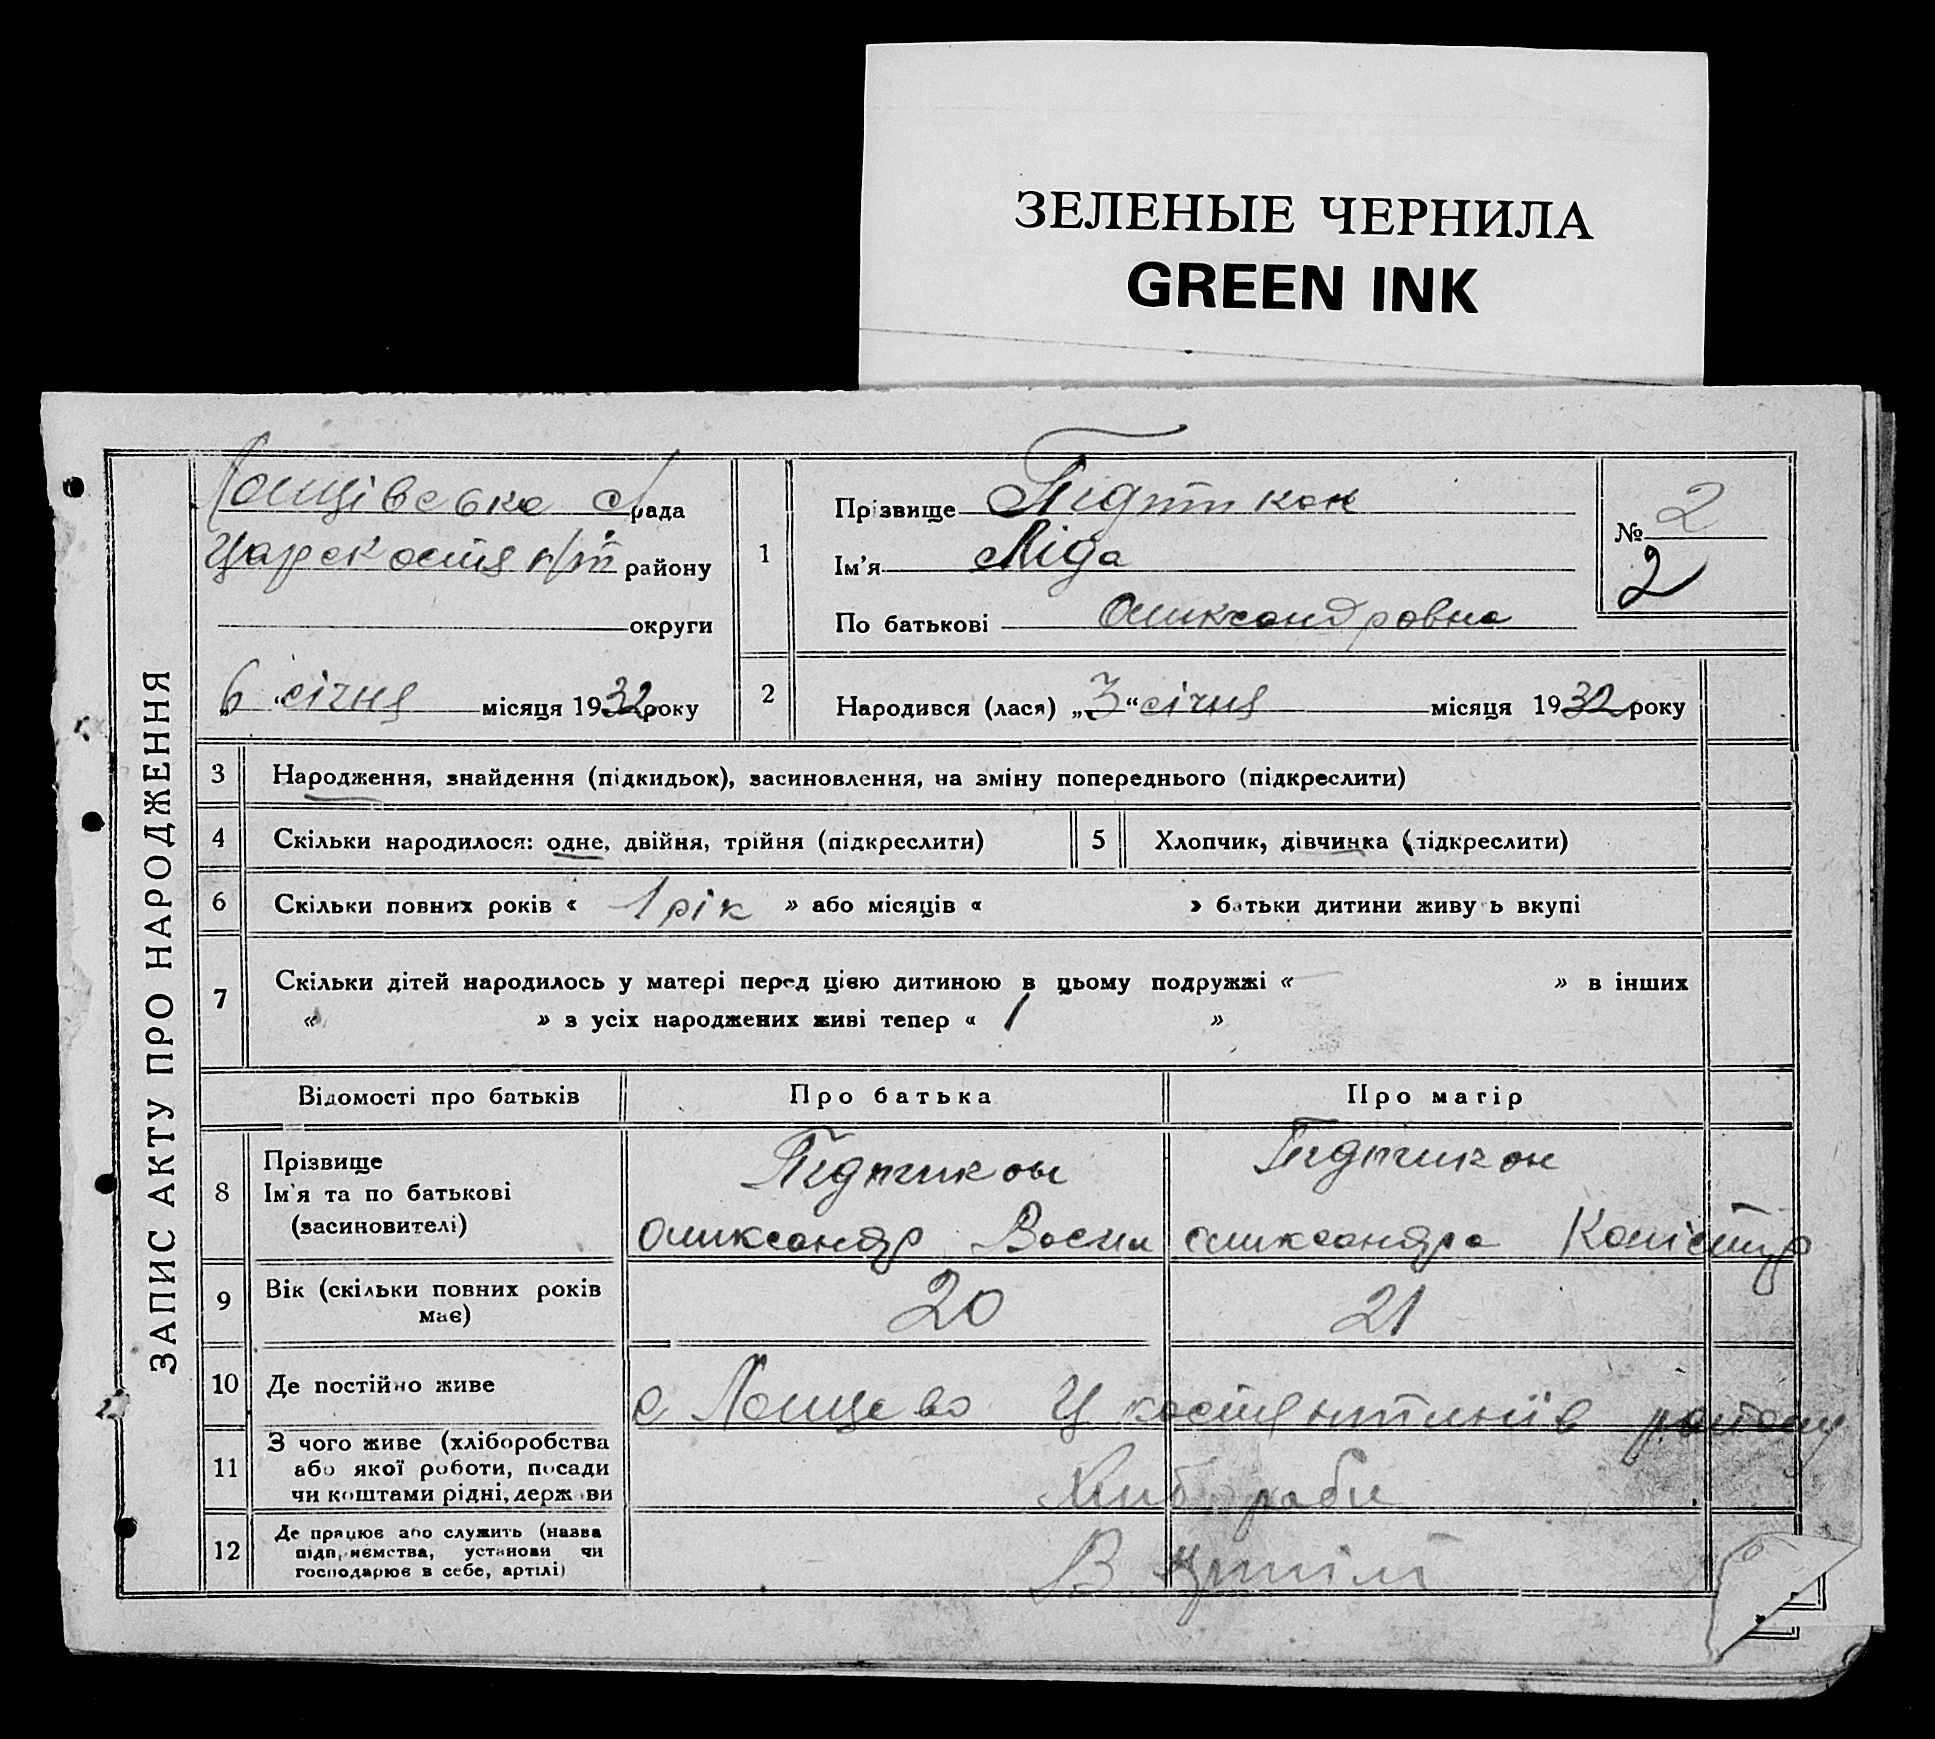 ЗЕЛЕНЫЕ ЧЕРНИЛА
GREEN INK
ЗАПИС АКТУ ПРО НАРОДЖЕННЯ
рада
району
округи
6 січня місяця 1932 року
1
Прізвище
Ім'я Ліда
По батькові Оликсандровна
№ 2
2
2 Народився (лася) „3“ січня місяця 1932 року
3 Народження, знайдення (підкидьок), засиновлення, на зміну попереднього (підкреслити)
4 Скільки народилося: одне, двійня, трійня (підкреслити)
5 Хлопчик, дівчинка (підкреслити)
6 Скільки повних років « 1 рік » або місяців « » батьки дитини живуть вкупі
7 Скільки дітей народилось у матері перед цією дитиною в цьому подружжі « » в інших
« » з усіх народжених живі тепер « 1 »
Відомості про батьків Про батька Про матір
8 Прізвище
Ім'я та по батькові
(засиновителі)
Оликсандр Васил Оликсандра
9 Вік (скільки повних років має) 20 21
10 Де постійно живе
с
11 З чого живе (хліборобства
або якої роботи, посади
чи коштами рідні, держави
12 Де працює або служить (назва
підприємства, установи чи
господарює в себе, артілі)
В